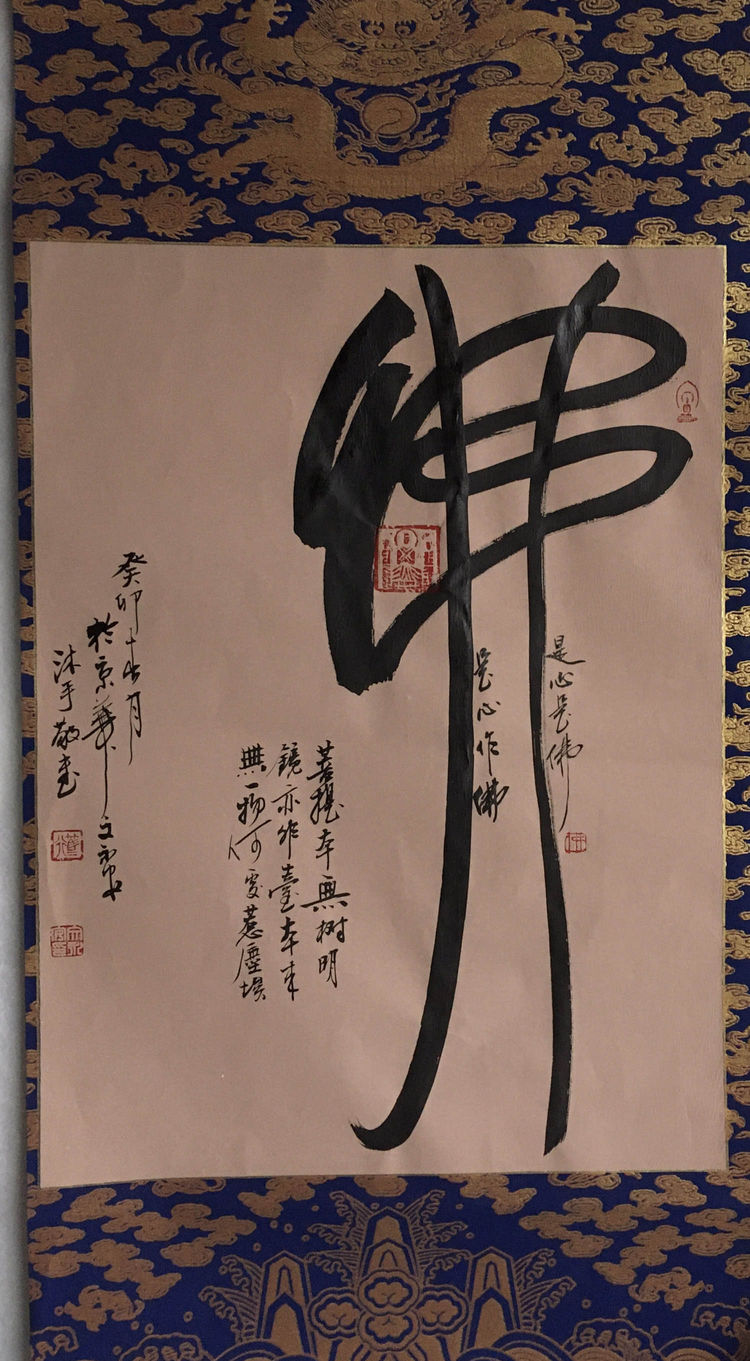 佛
是心是佛
是心作佛
菩提本無树明
镜亦非臺本来
無一物何處惹塵埃
癸卯十一月
於京華
沐手敬书